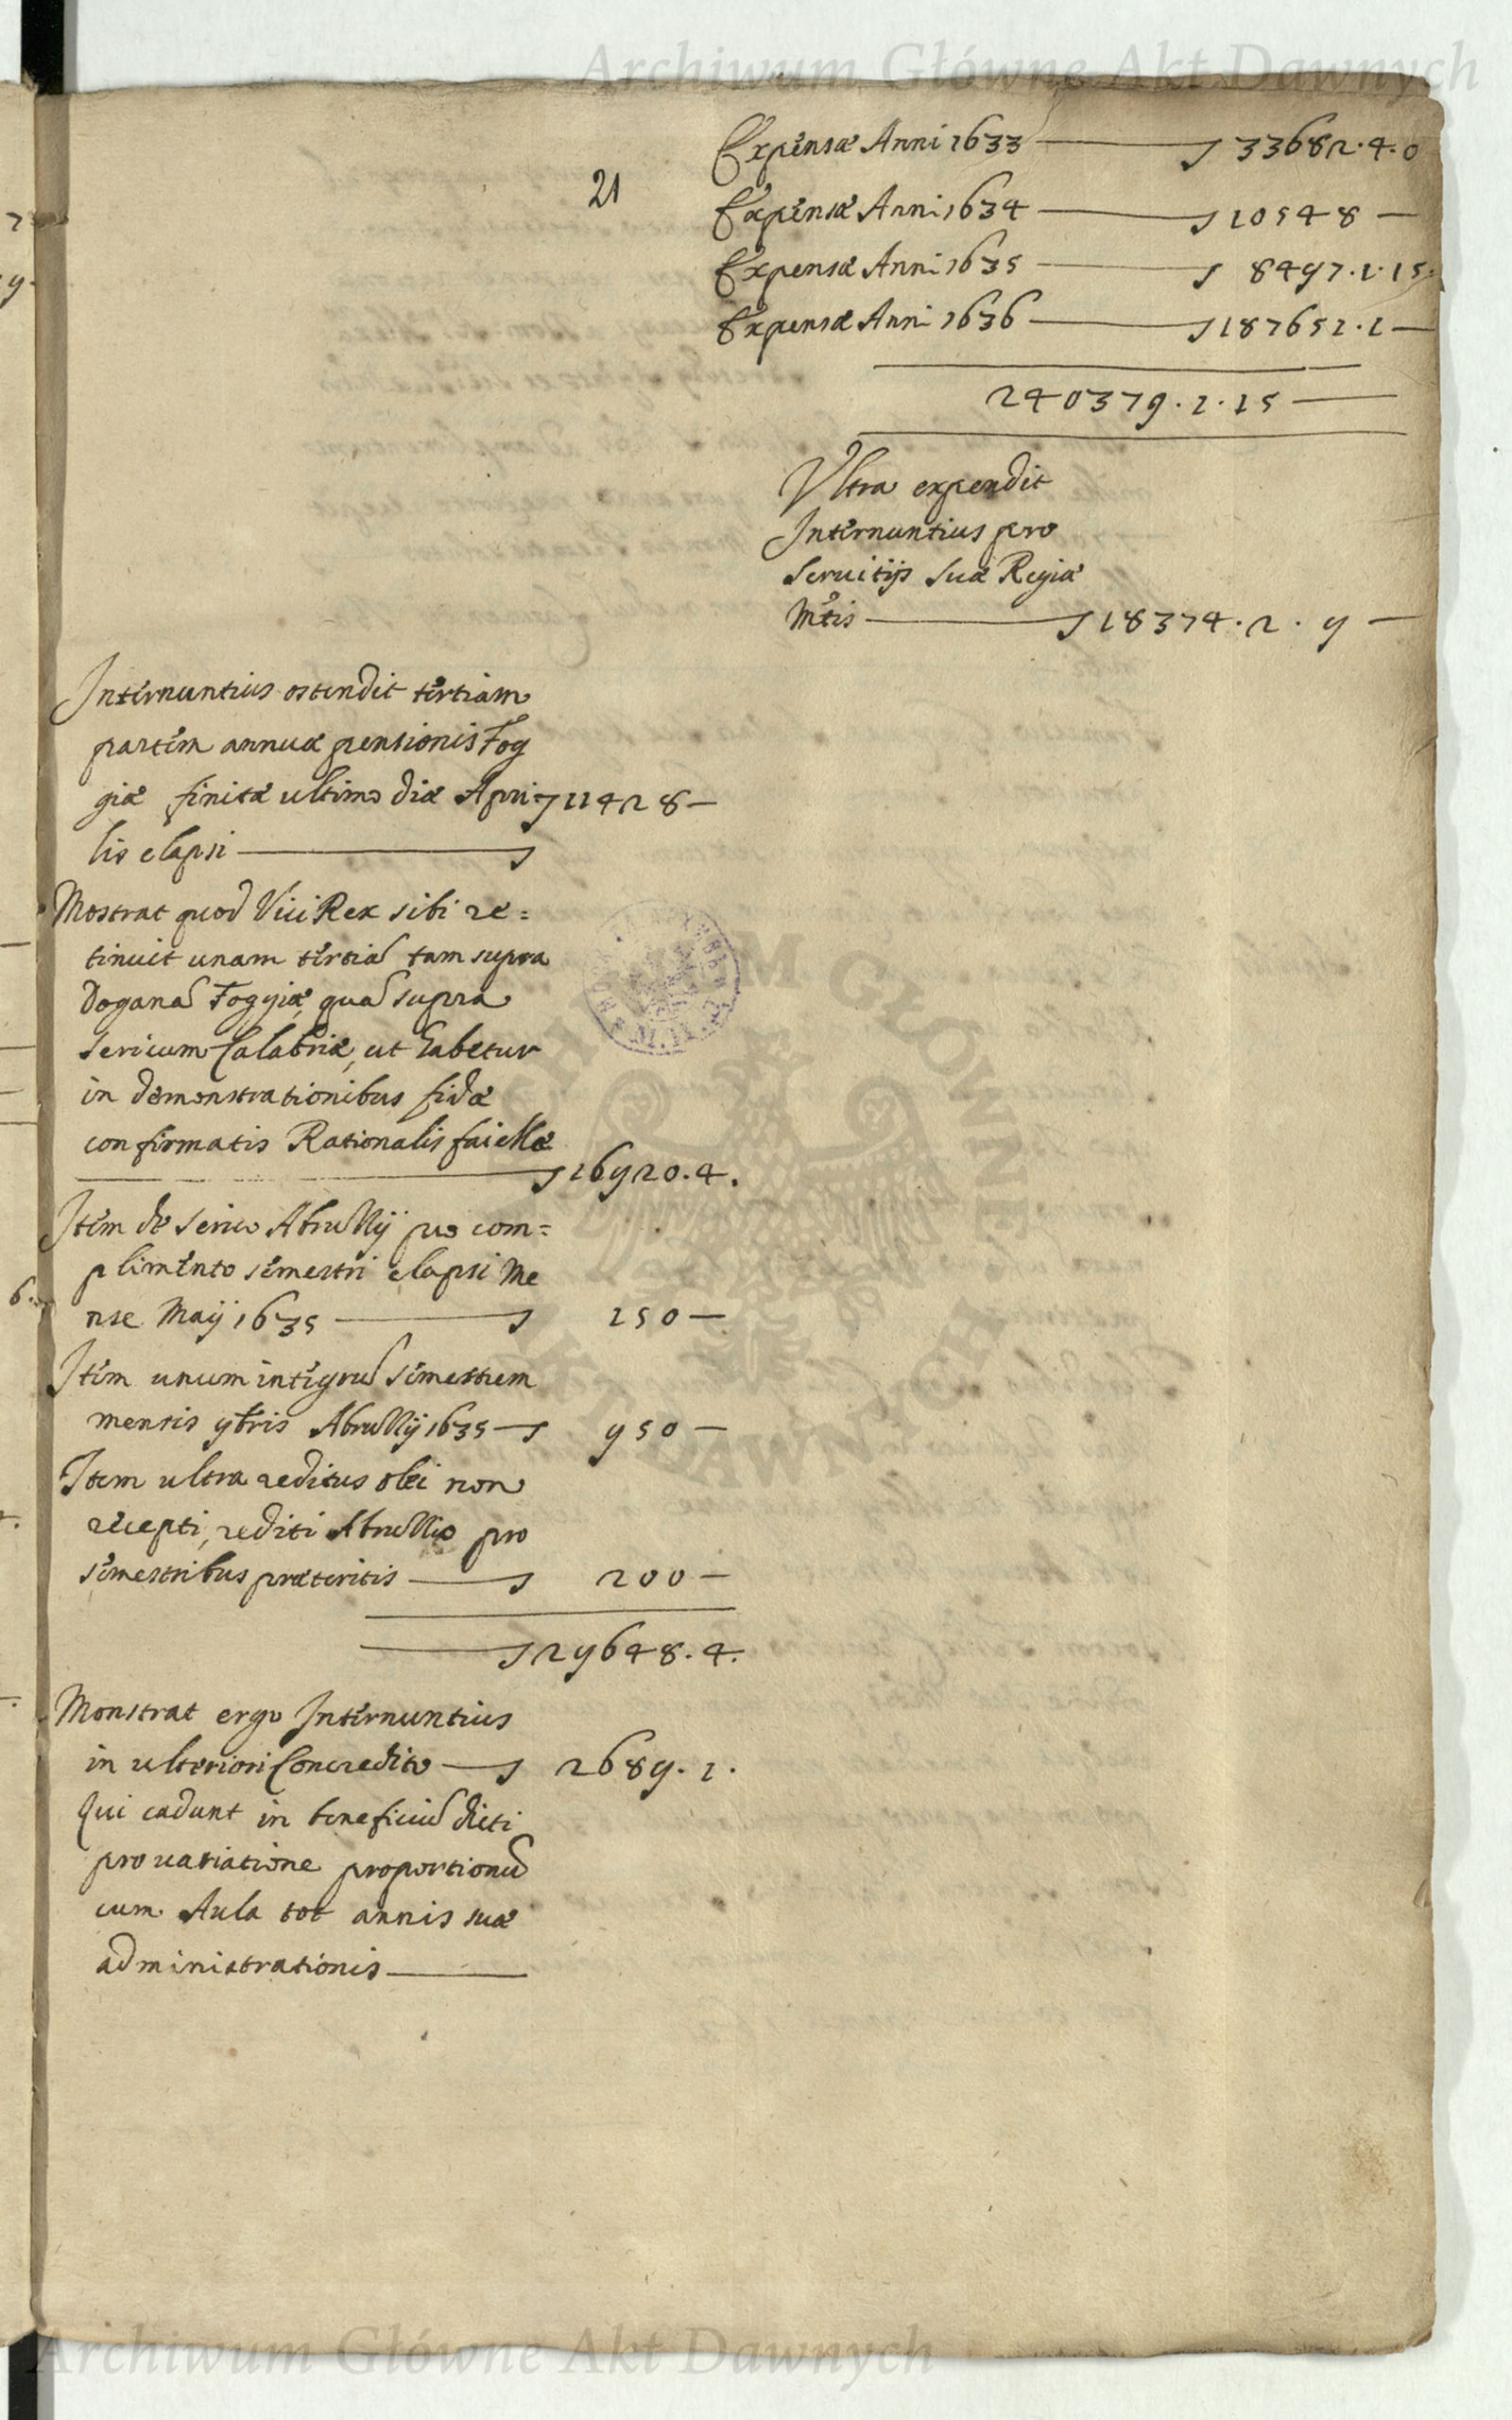 Archiwum Główne Akt Dawnych
21
Expensæ Anni 1633 — 33682.4.0
Expensæ Anni 1634 — 10548 —
Expensæ Anni 1635 — 8497.1.15.
Expensæ Anni 1636 — 187651.1 —
240379.1.15 —
Vltra expendit
Internuntius pro
Seruitijs Suæ Regiæ
Mtis — 18374.2.9 —
Internuntius ostendit tertiam
partem annuæ pensionis Fog
giæ finitæ ultimo diæ Apri 11428 —
lis elapsi —
Mostrat quod Vici Rex sibi re=
tinuit unam tertia tam supra
Dogana Foggiæ, qua supra
sericum Calabriæ, ut habetur
in demonstrationibus fidæ
confirmatis Rationalis faiellæ
— 16920.4.
Item de serico Abruttij pro com=
plimento semestri elapsi Me
nse Maij 1635 — 150 —
Item unum integru semestrem
mensis 9bris Abruttij 1635 — 950 —
Item ultra reditus olei non
recepti, rediti Abruttio pro
semestribus præteritis — 200 —
— 29648.4.
Monstrat ergo Internuntius
in ulteriori Concredito — 2689.1.
Qui cadunt in beneficiu dicti
pro uariatione proportionu
cum Aula tot annis suæ
administrationis —
ARCHIWUM GŁÓWNE
AKT DAWNYCH
Archiwum Główne Akt Dawnych